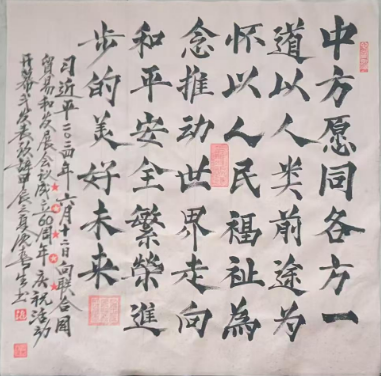 中方愿同各方一
道以人类前途为
怀以人民福祉為
念推动世界走向
和平安全繁榮進
步的美好未来
习近平二〇二四年六月十二日向联合国
贸易和发展会议成立60周年庆祝活动
开幕式发表视频